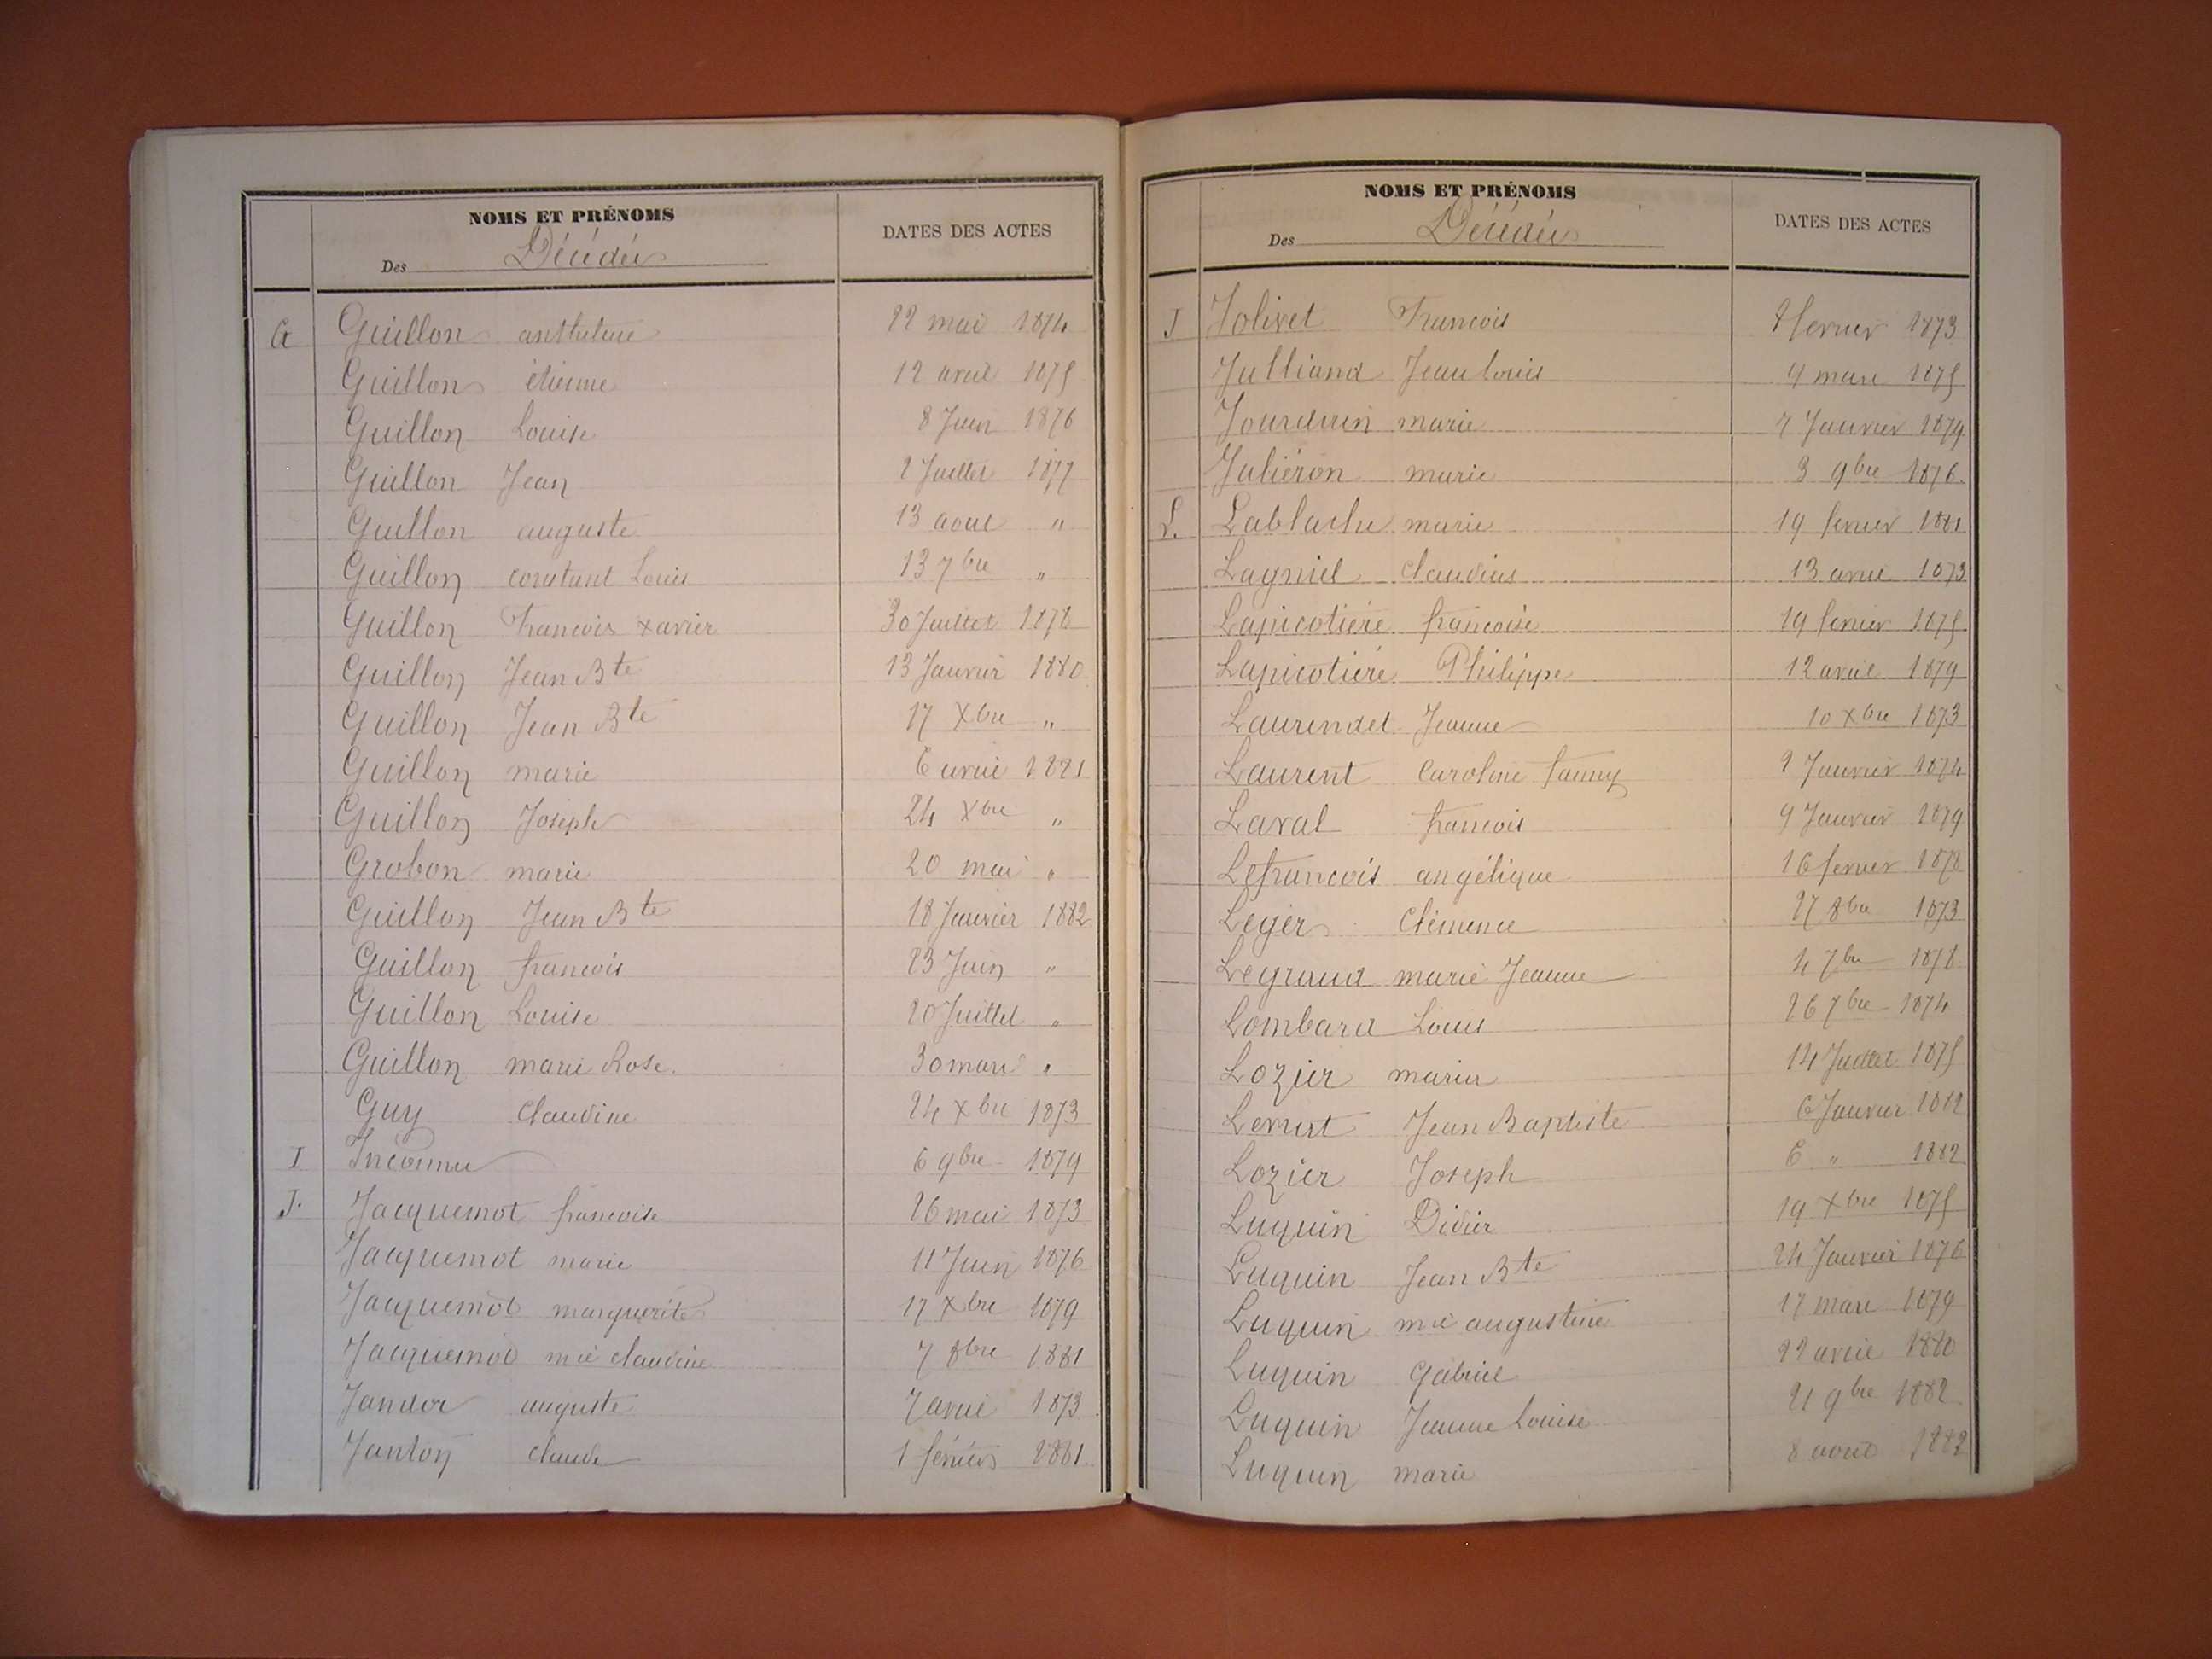 NOMS ET PRÉNOMS
Des Décédés
DATES DES ACTES
G Guillon anthelme 22 mai 1874
Guillon étienne 12 avril 1875
Guillon Louise 8 Juin 1876
Guillon Jean 2 Juillet 1877
Guillon auguste 13 aout "
Guillon constant Louis 13 7bre "
Guillon Francois xavier 30 Juillet 1878
Guillon Jean Bte 13 Janvier 1880
Guillon Jean Bte 17 Xbre "
Guillon marie 6 avril 1881
Guillon Joseph 24 Xbre "
Grobon marie 20 mai "
Guillon Jean Bte 18 Janvier 1882
Guillon francois 23 Juin "
Guillon Louise 20 Juillet "
Guillon marie Rose. 30 mars "
Guy Claudine 24 Xbre 1873
I Inconnu 6 9bre 1879
J. Jacquemot francoise 26 mai 1873
Jacquemot marie 11 Juin 1876
Jacquemot marguerite 17 Xbre 1879
Jacquemot mie claudine 7 8bre 1881
Jandor auguste 7 avril 1873
Janton claude 1 février 1881.
NOMS ET PRÉNOMS
Des Décédés
DATES DES ACTES
J Jolivet Francois 2 fevrier 1873
Julliand Jean Louis 9 mars 1875
Jourdain marie 7 Janvier 1879
Juliéron marie 3 9bre 1876.
L. Lablache marie 19 fevrier 1881
Lagniel Claudius 13 avril 1873
Lapicotière francoise 19 fevrier 1875
Lapicotière Philippe 12 avril 1879
Laurendet Jeanne 10 Xbre 1873
Laurent Caroline fanny 2 Janvier 1874
Laval francois 9 Janvier 1879
Lefrancois angélique 16 fevrier 1878
Leger Clémence 27 8bre 1873
Legrand marie Jeanne 4 7bre 1878
Lombard Louis 26 7bre 1874
Lozier marie 14 Juillet 1875
Jean Baptiste 6 Janvier 1882
Lozier Joseph 6 " 1882
Luquin Didier 19 Xbre 1875
Luquin Jean Bte 24 Janvier 1876
Luquin mie augustine 17 mars 1879
Luquin Gabriel 22 avril 1880
Luquin Jeanne Louise 21 9bre 1882
Luquin marie 8 aout 1882